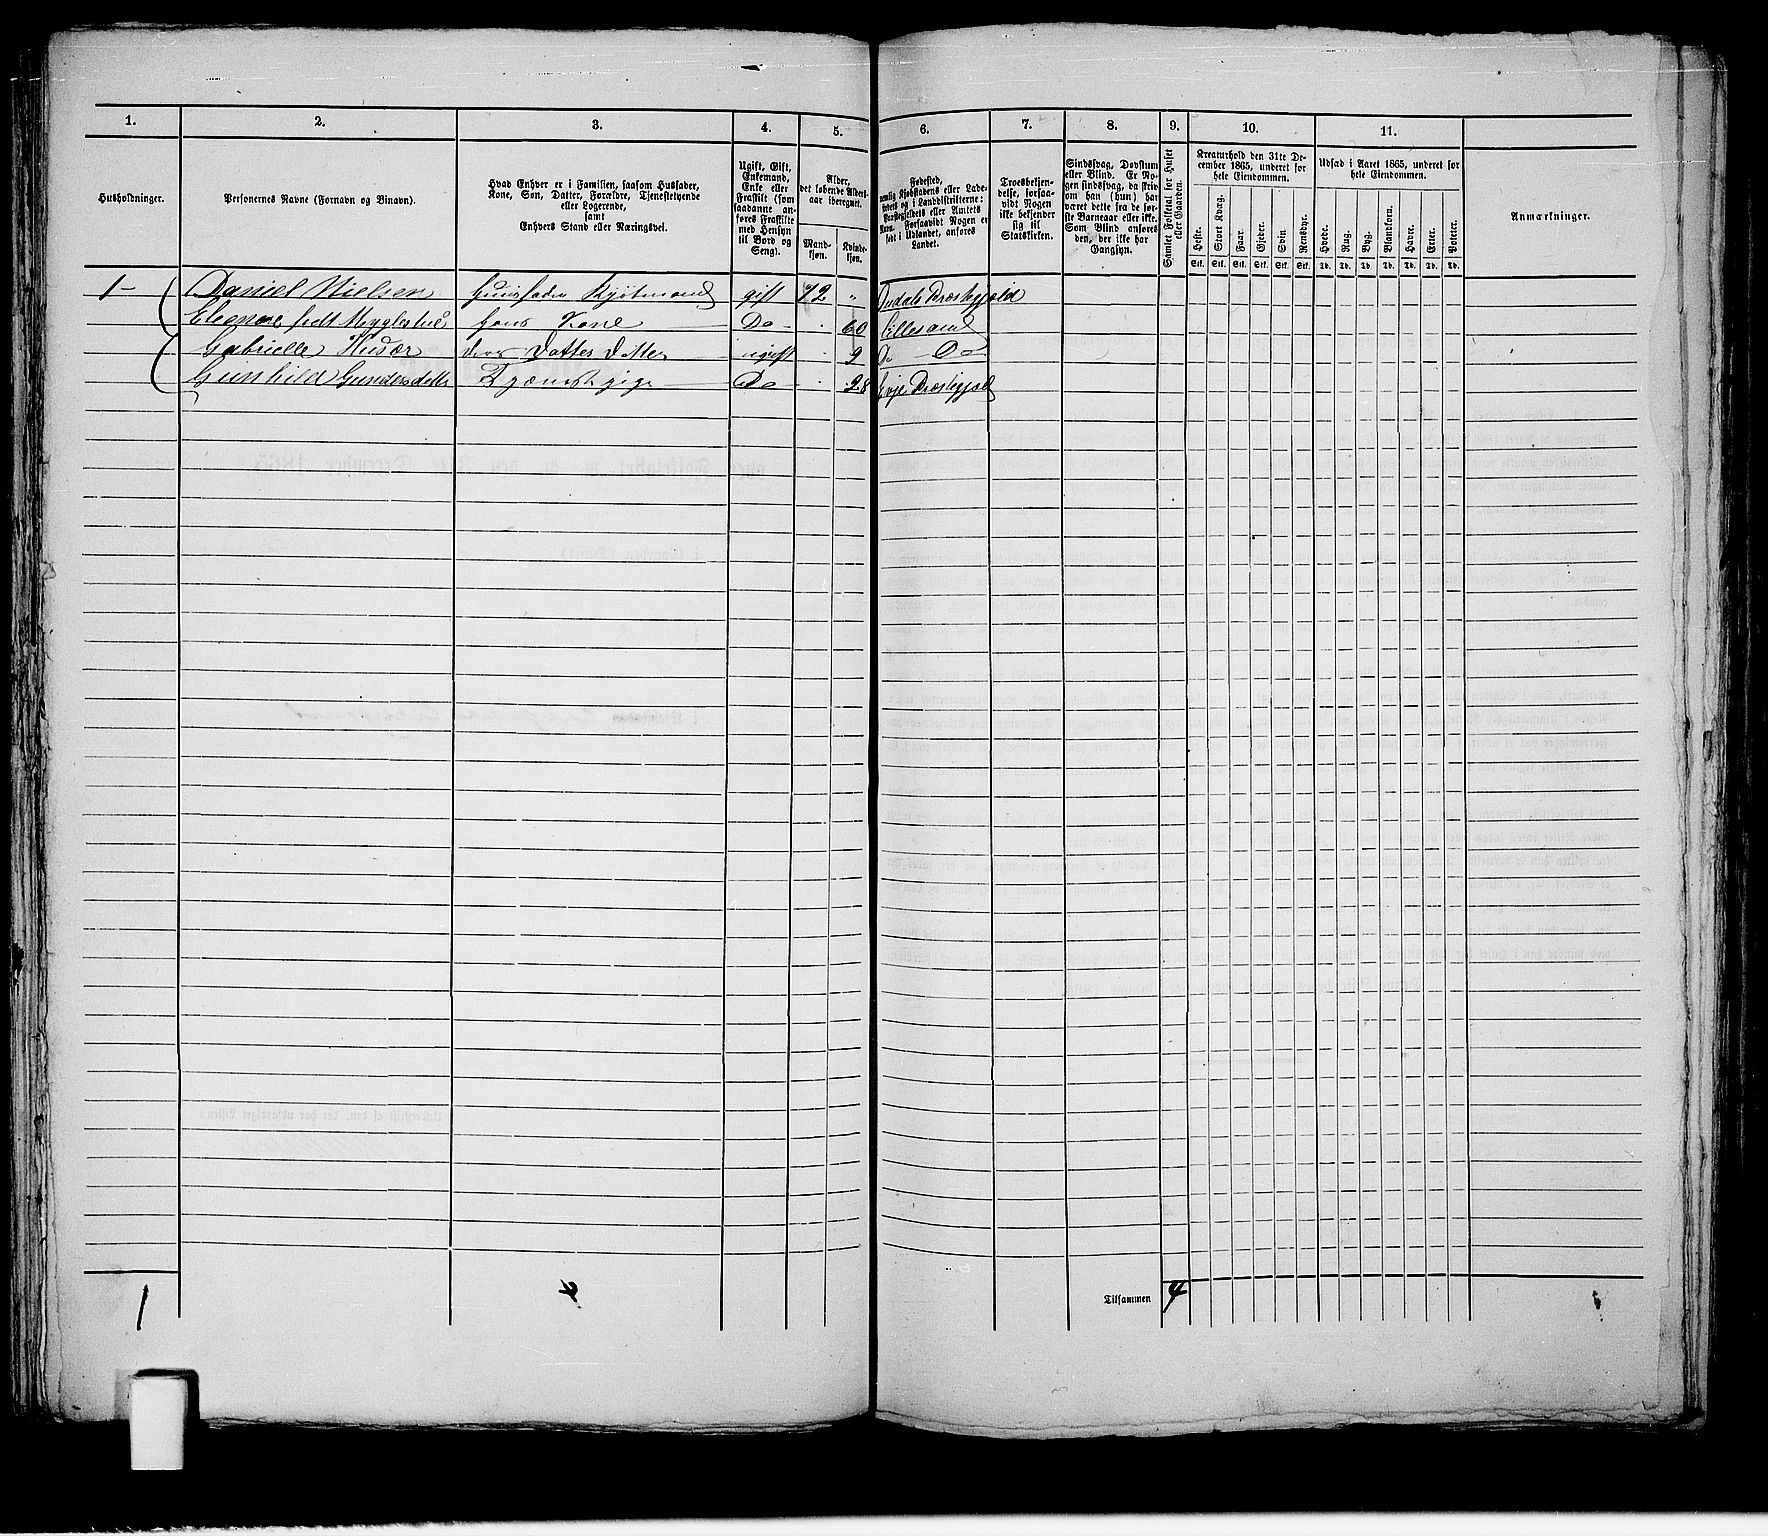 1. 2. 3. 4. 5. 6. 7. 8. 9. 10. 11.
Husholdninger.
Personernes Navne (Fornavn og Binavn).
Hvad Enhver er i Familien, saasom Husfader,
Kone, Søn, Datter, Forældre, Tjenestetyende
eller Logerende,
samt
Enhvers Stand eller Næringsvei.
Ugift, Gift,
Enkemand,
Enke eller
Fraskilt (som
saadanne an-
føres Fraskilte
med Hensyn
til Bord og
Seng).
Alder,
det løbende Alders-
aar iberegnet.
Mand-
kjøn.
Kvinde-
kjøn.
Fødested,
nemlig Kjøbstadens eller Lade-
stedets og i Landdistrikterne:
Præstegjeldets eller Amtets
Navn. Forsaavidt Nogen er
født i Udlandet, anføres
Landet.
Troesbekjen-
delse, forsaa-
vidt Nogen
ikke bekjender
sig til
Statskirken.
Sindssvag, Døvstum
eller Blind. Er No-
gen sindssvag, da skriv
om han (hun) har
været dette fra de før-
ste Barneaar eller ikke.
Som Blind ansøres
den, der ikke har
Gangsyn.
Samlet Folketal for Huset
eller Gaarden.
Kreaturhold den 31te De-
cember 1865, underet for
hele Eiendommen.
Heste. Stort Kvæg. Faar. Gjeder. Svin. Rensdyr.
Stk. Stk. Stk. Stk. Stk. Stk.
Udsæd i Aaret 1865, underet for
hele Eiendommen.
Hvede. Rug. Byg. Blandkorn. Havre. Erter. Poteter.
Td. Td. Td. Td. Td. Td. Td.
Anmærkninger.
1 - Daniel Nielsen Huusfader Kjøbmand gift 72 "
Eleonore født hans Kone Do - 60 Lillesand
Gabrielle Husær deres Datter Datter ugift 2 Do - Do
Gunhild Gundersdatter Tjenestepige Do 28 Evje Præstegjeld
1 4 Tilsammen 4